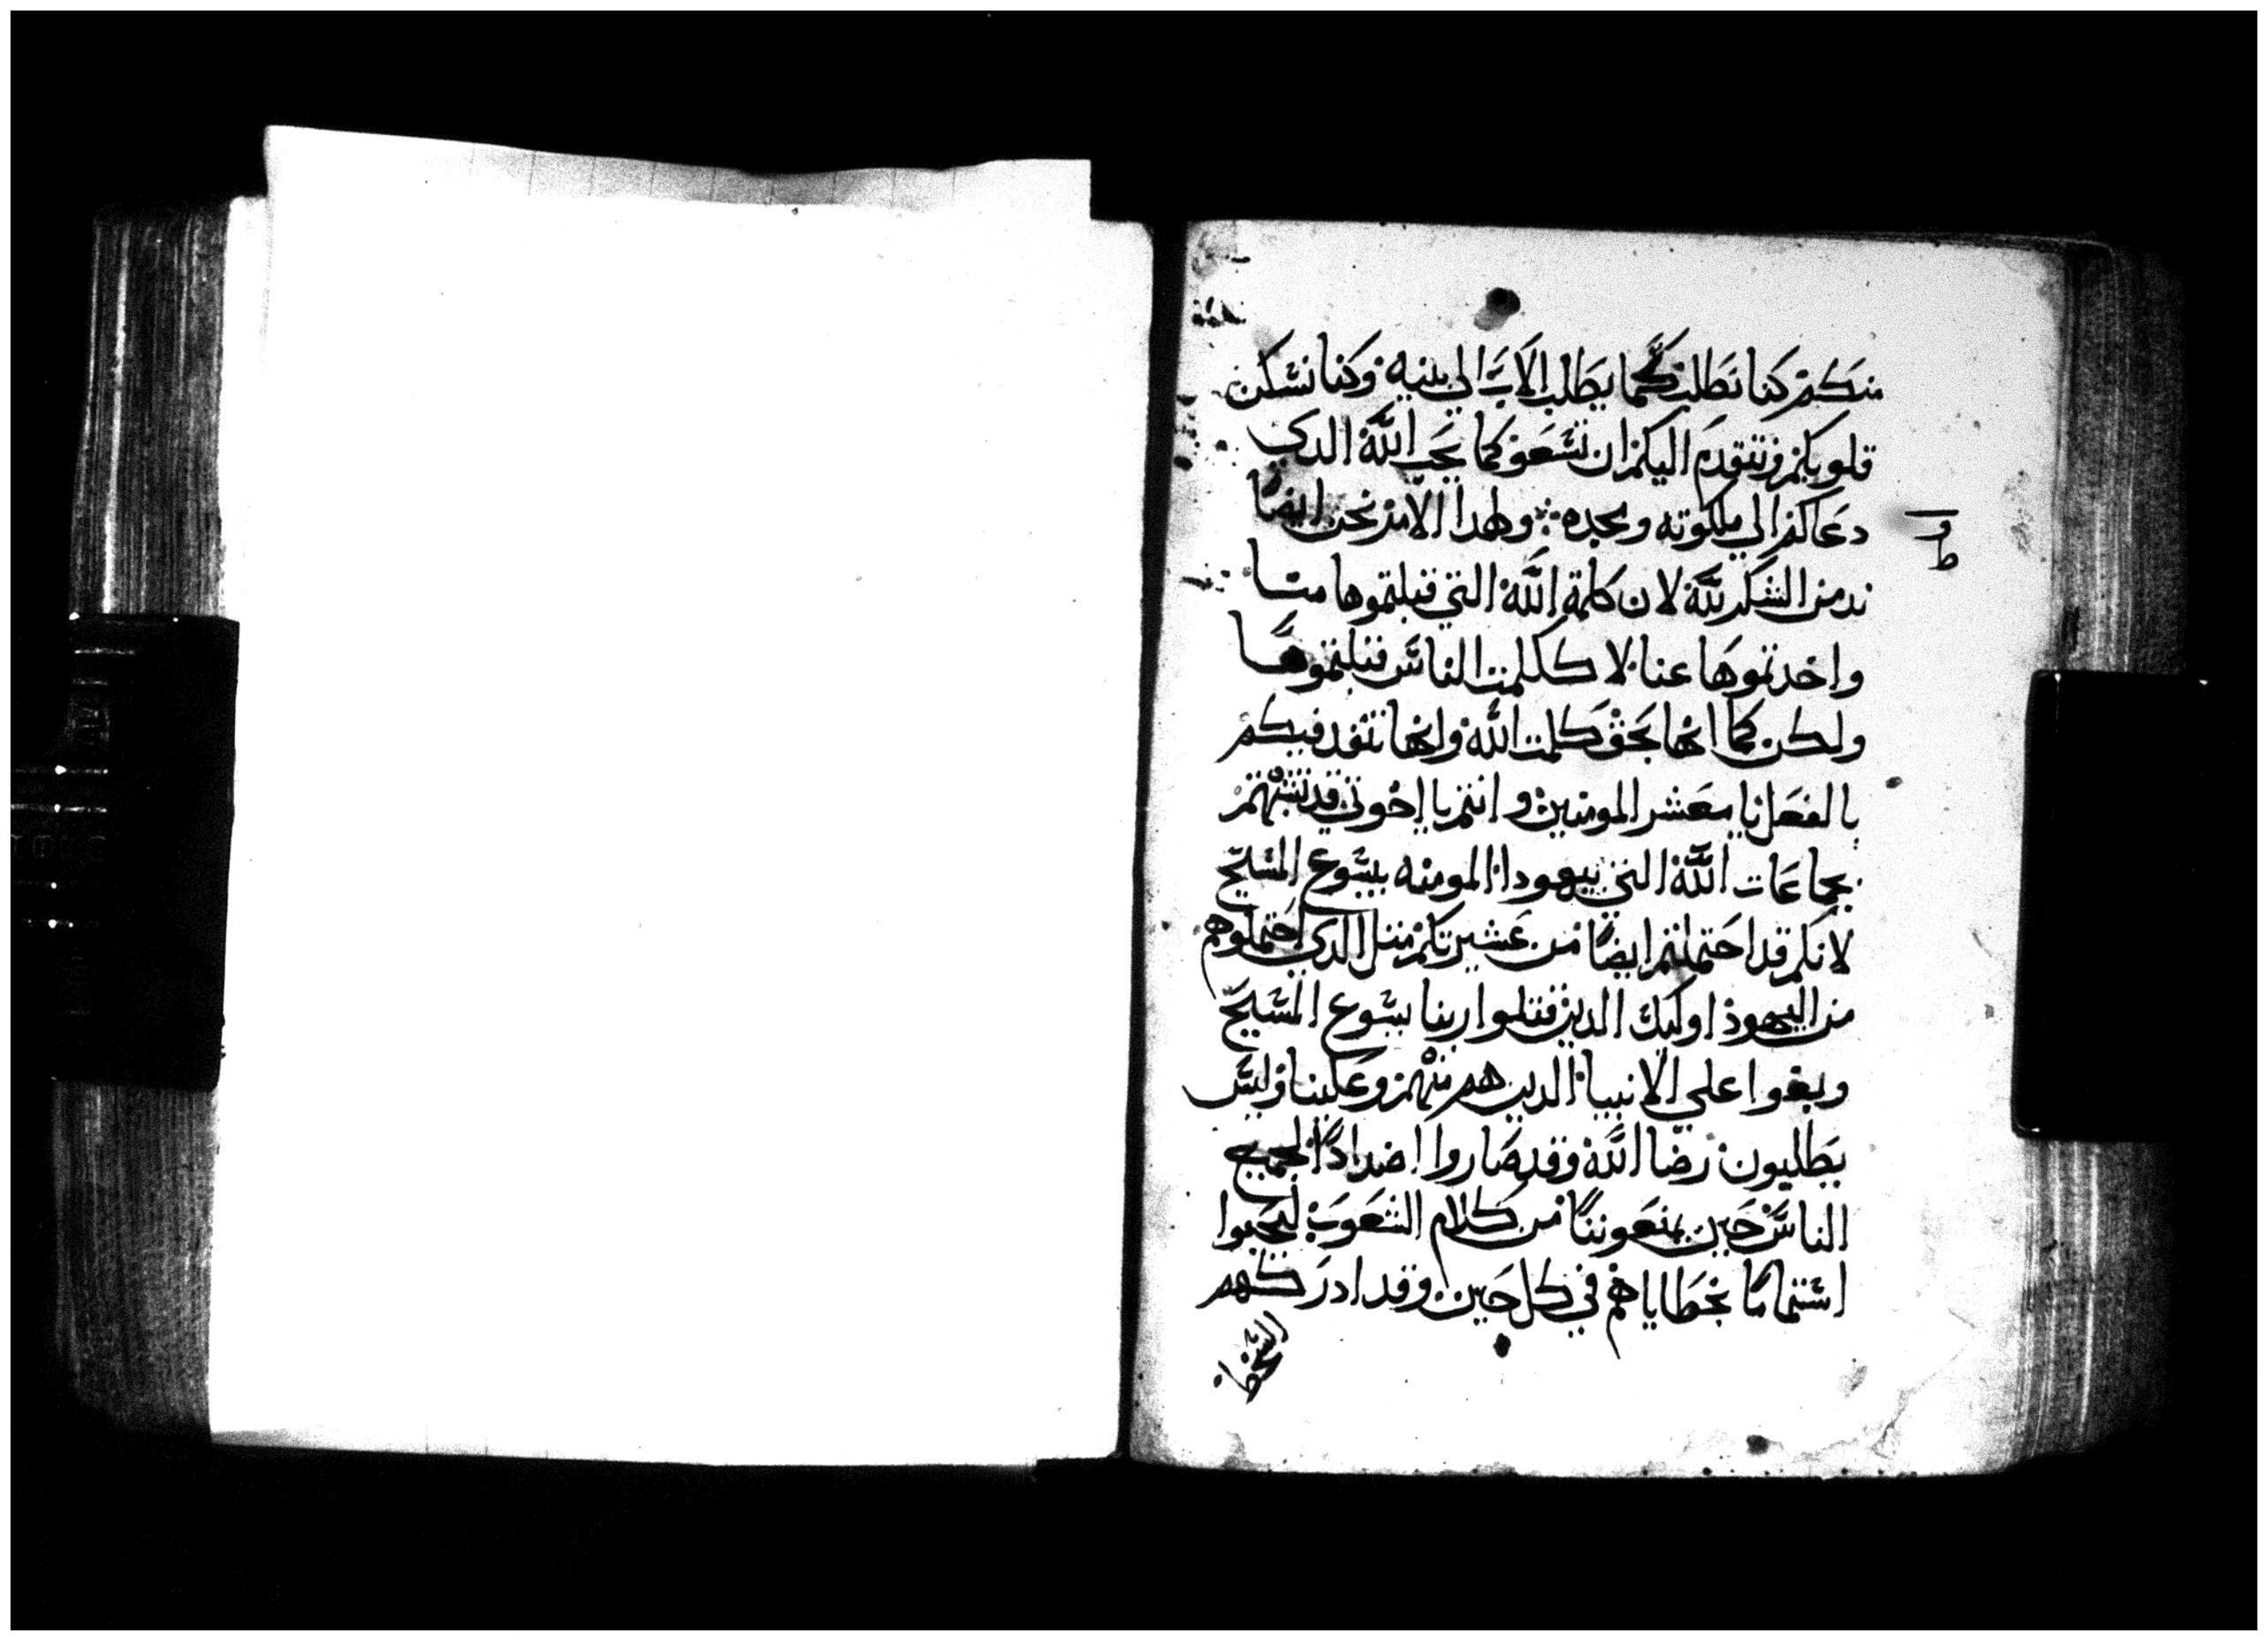 منكم كنا نطلب كما يطلب الاب الي بنيه وكنا نسكن
قلوبكم ونتقدم اليكم ان تسعو كما يحب الله الدي
دعاكم الي ملكوته ومجده ولهدا الامر نحن ايضا
ندمن الشكر لله لان كلمة الله التي قبلتموها منا
واخدتموها عنا لا ككلمت الناس قبلتموها
ولكن كما انها بحق كلمت الله وانها تنفد فيكم
بالفعل يا معشر المومنين وانتم يا اخوتي قد تشبهتم
بجماعات الله التي بيهودا المومنه بيسوع المسيح
لانكم قد احتملتم ايضا من عشيرتكم متل الدي احتملوهم
من اليهود اوليك الدين قتلوا ربنا يسوع المسيح
وبغوا علي الانبيا الدين هم منهم وعلينا وليس
يطلبون رضا الله وقد صاروا اضدادا لجميع
الناس حين يمنعوننا من كلام الشعوب ليحيوا
استتماما بخطاياهم في كل حين وقد ادركهم
السخط